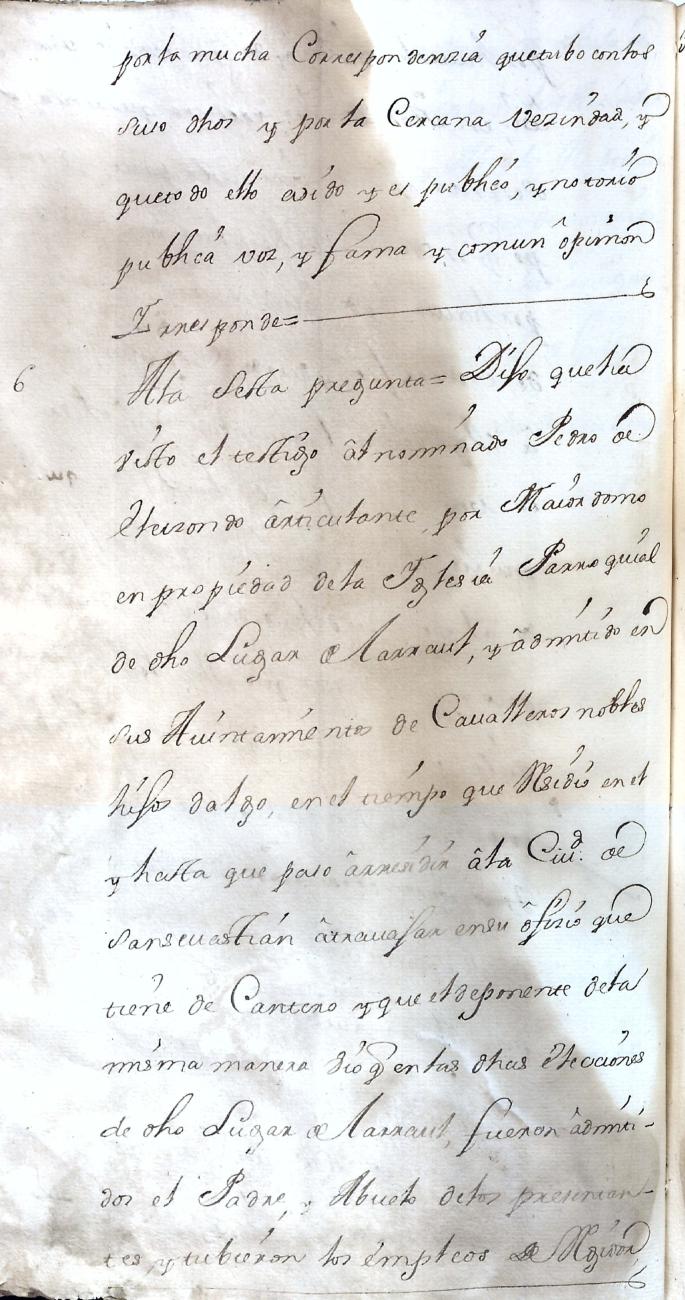 por la mucha Correspondenzia que tubo con los
suso dhos y por la Cercana Vezindad, y
que todo ello a sido y es publico, y notorio
publica voz, y fama y comun opinion
I rresponde=
6 A la Sesta pregunta= Dijo que ha
visto el testigo al nominado Pedro de
Eleizondo articulante, por Maiordomo
en propiedad de la Iglesia Parroquial
de dho Lugar de Larraul, y admitido en
sus Aiuntamientos de Cavalleros nobles
hijos dalgo, en el tiempo que Residio en el
y hasta que paso a rresidir a la Ciud. de
San sevastian a travajar en su ofizio que
tiene de Cantero y que el deponente de la
misma manera vio q en las dhas elecciones
de dho Lugar de Larraul, fueron admiti-
dos el Padre, y Abuelo de los presentan-
tes, y tubieron los empleos de Rexidor